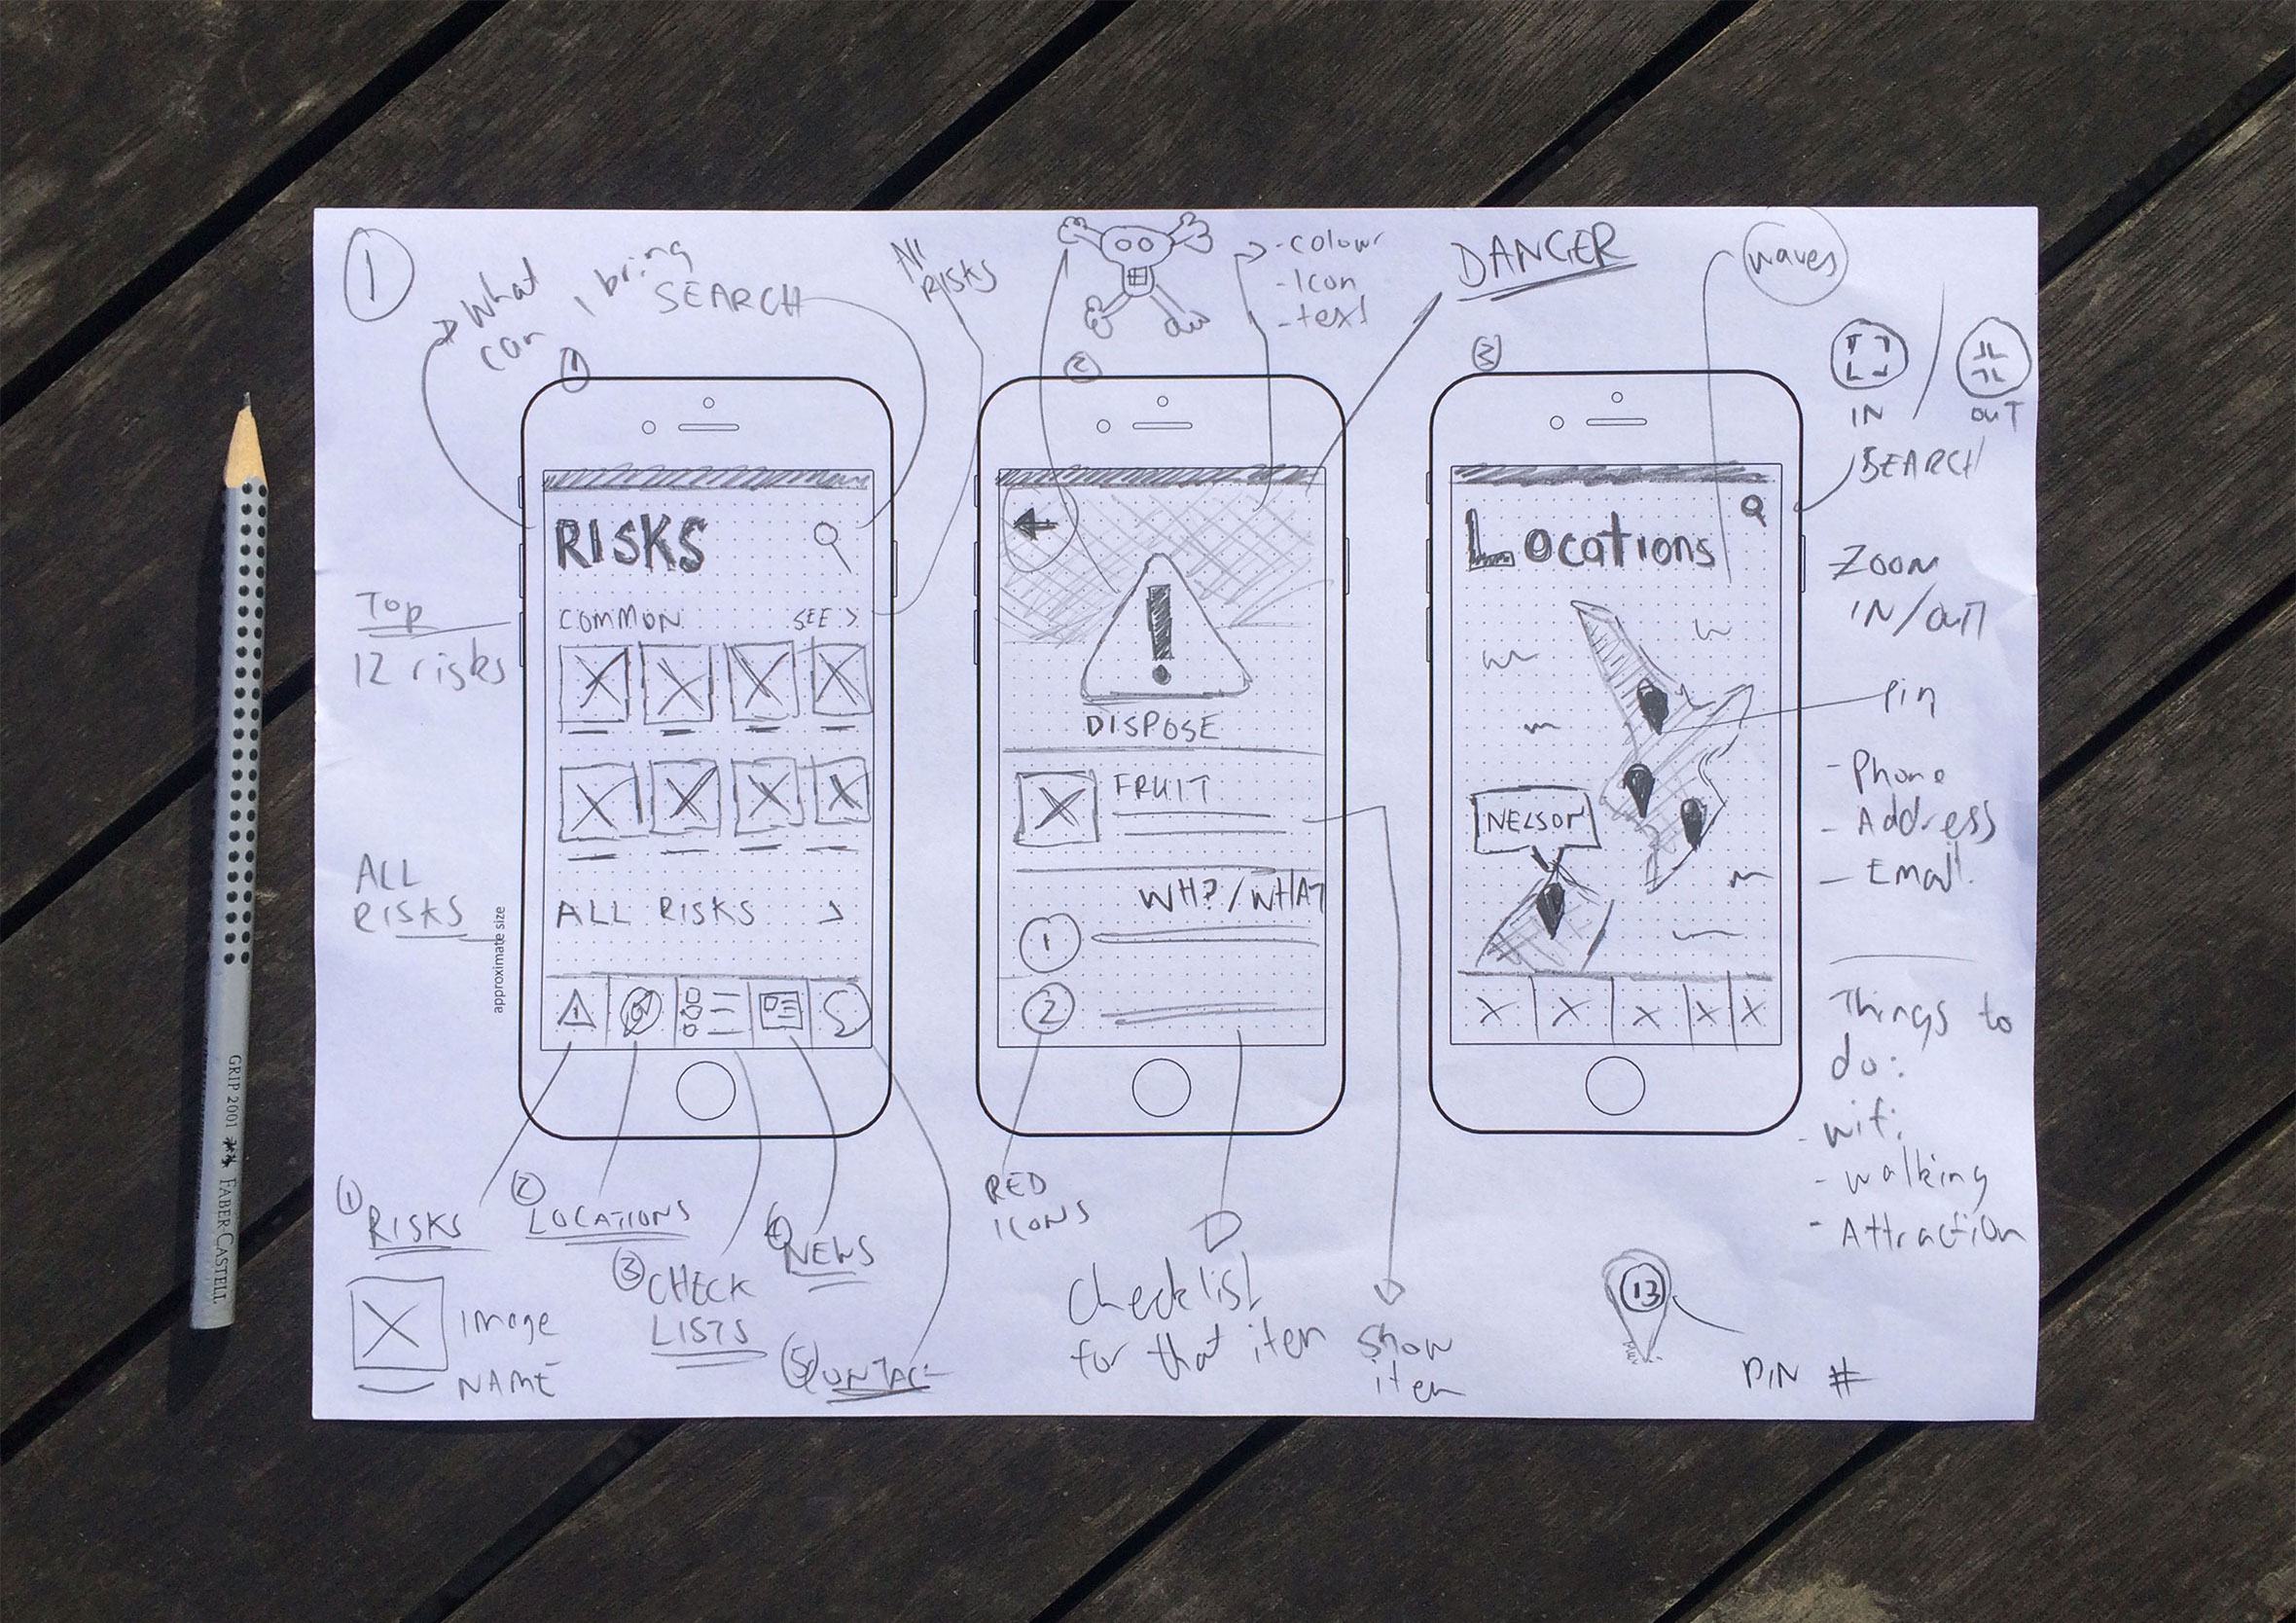 1
What
can I bring
SEARCH
All
RISKS
- colour
- Icon
- text
DANGER
waves
1
2
3
IN
OUT
SEARCH
RISKS
COMMON
SEE >
Top
12 risks
ALL RISKS >
ALL
RISKS
approximate size
DISPOSE
FRUIT
WH? / WHAT
1
2
Locations
NELSON
ZOOM
IN/OUT
Pin
- Phone
- Address
- Email
Things to
do:
- wifi
- walking
- Attraction
1 RISKS
2 LOCATIONS
3 CHECK
LISTS
4 NEWS
5 CONTACT
Image
NAME
RED
ICONS
Checklist
for that item
Show
item
13
PIN #
GRIP 2001 FABER-CASTELL